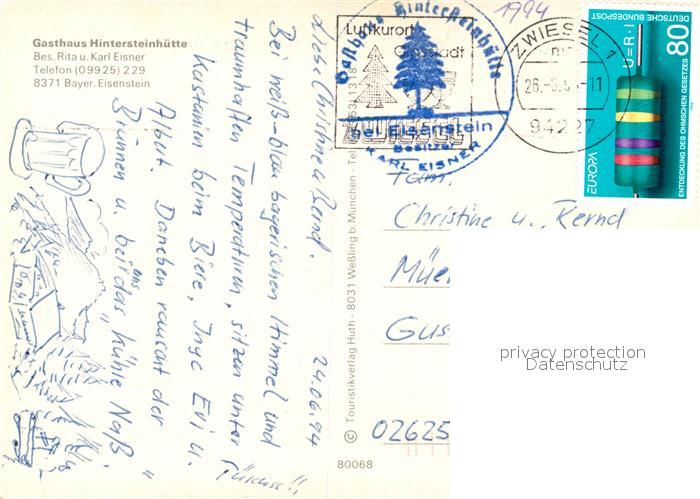 Gasthaus Hintersteinhütte
Bes. Rita u. Karl Eisner
Telefon (09925) 229
8371 Bayer. Eisenstein
24.06.94
Liebe Christine u. Bernd.
Bei weiß-blau bayerischen Himmel und
traumhaften Temperaturen, sitzen unter
Kastanien beim Biere, Inge Evi u.
Albert. Daneben rauscht der
Brunnen u. bei uns das "kühle Naß".
Tschüss!!
© Touristikverlag Huth - 8031 Weßling b. München - Tel.
80068
1994
Luftkurort
Glasstadt
ZWIESEL
Gasthaus Hintersteinhütte
bei Eisenstein
Besitzer
KARL EISNER
ZWIESEL 1
26.-6.
-11
94227
DEUTSCHE BUNDESPOST
80
U = R · I
ENTDECKUNG DES OHMSCHEN GESETZES
EUROPA
Fam.
Christine u. Bernd
Mü
Gus
02625
privacy protection
Datenschutz